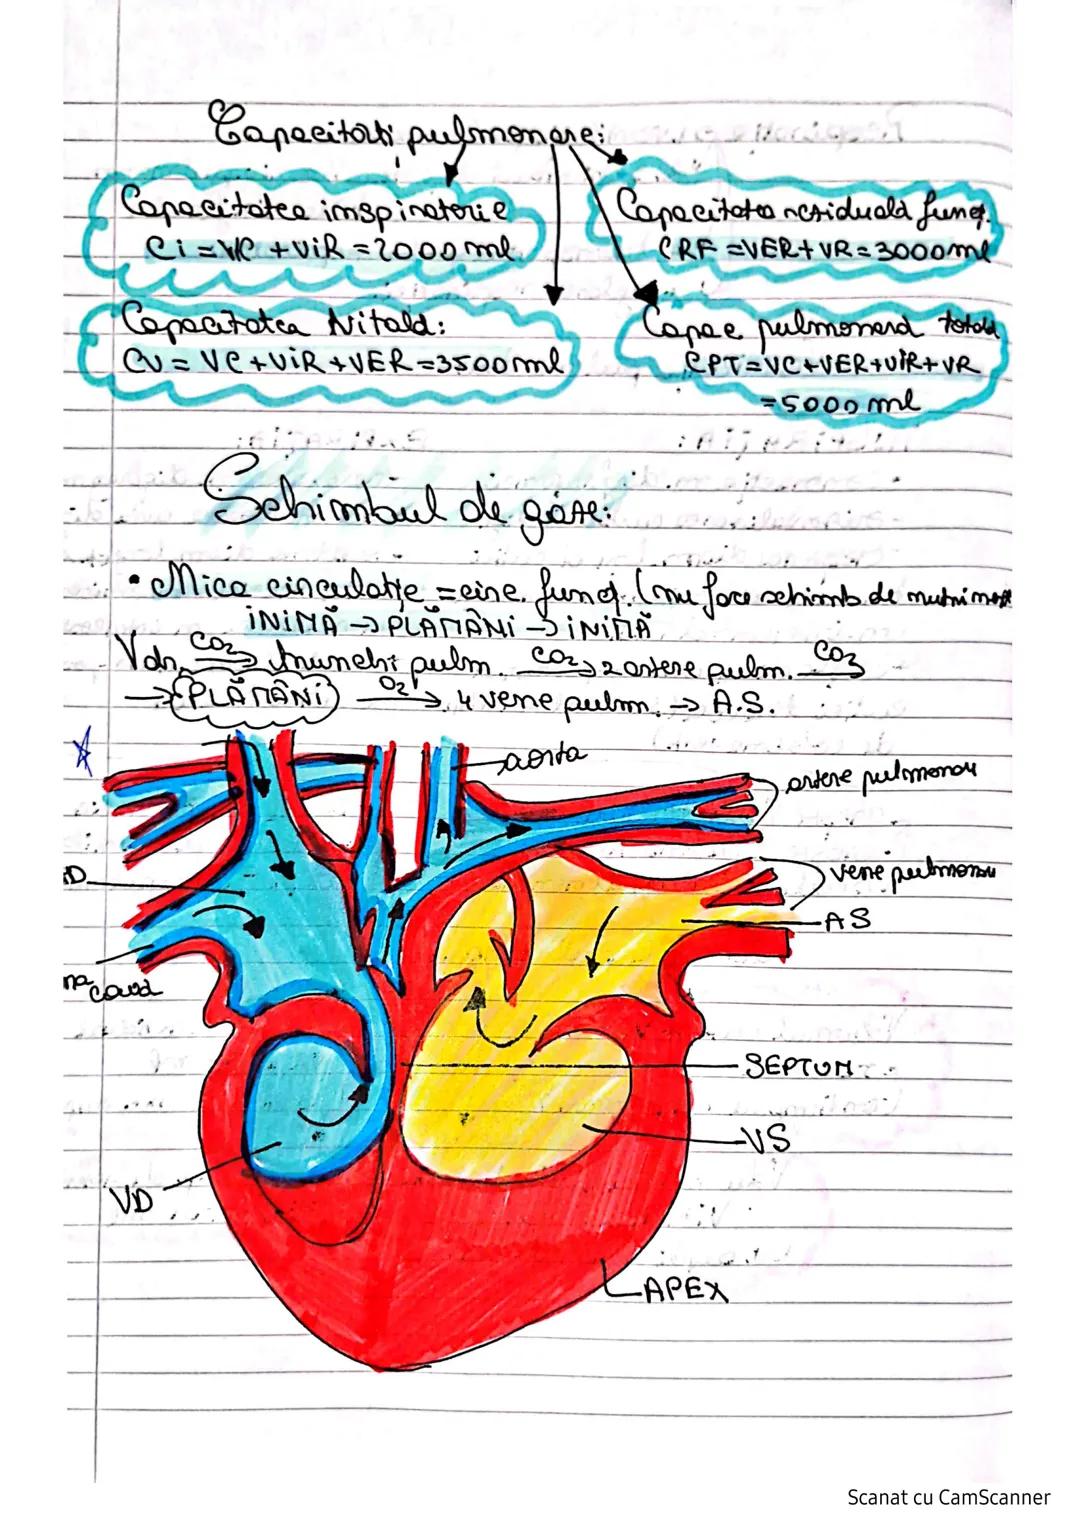 Capacități pulmonare:
Capacitatea inspiratorie
Ci = VC + ViR = 2000 ml
Capacitatea reziduală funcț.
CRF = VER + VR = 3000 ml
Capacitatea Vitală:
CV = VC + ViR + VER = 3500 ml
Capac pulmonară totală
CPT = VC + VER + ViR + VR
= 5000 ml
Schimbul de gaze:
• Mica circulație = circ. funcț. (nu face schimb de
INIMĂ → PLĂMÂNI → INIMĂ
Vdr. CO2 → trunchi pulm. CO2 → 2 artere pulm. CO2 →
→ PLĂMÂNI O2 → 4 vene pulm. → A.S.
aorta
artere pulmonare
vene pulmonare
AS
cavă
SEPTUM
VS
VD
APEX
Scanat cu CamScanner